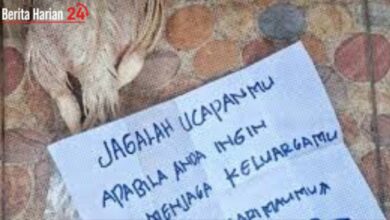 Berita Harian 24
JAGALAH UCAPANMU
APABILA ANDA INGIN
MENJAGA KELUARGAMU